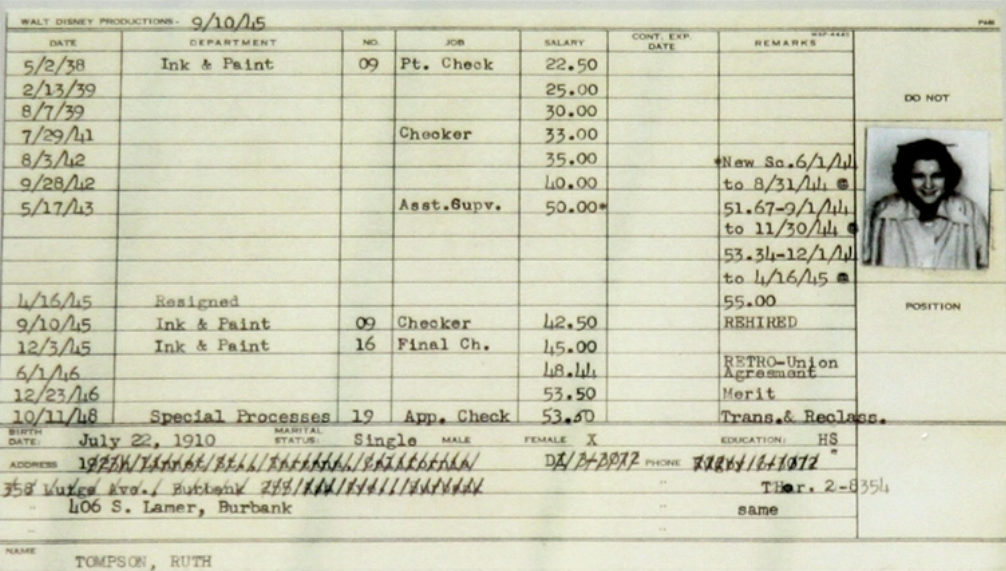 WALT DISNEY PRODUCTIONS - 9/10/45
DATE DEPARTMENT NO. JOB SALARY CONT. EXP. DATE REMARKS
5/2/38 Ink & Paint 09 Pt. Check 22.50
2/13/39 25.00
8/7/39 30.00
7/29/41 Checker 33.00
8/3/42 35.00 *New Sc. 6/1/44
9/28/42 40.00 to 8/31/44 @
5/17/43 Asst.Supv. 50.00* 51.67-9/1/44
to 11/30/44 @
53.34-12/1/44
to 4/16/45 @
4/16/45 Resigned 55.00
9/10/45 Ink & Paint 09 Checker 42.50 REHIRED
12/3/45 Ink & Paint 16 Final Ch. 45.00
6/1/46 48.44 RETRO-Union Agreement
12/23/46 53.50 Merit
10/11/48 Special Processes 19 App. Check 53.60 Trans.& Reclass.
DO NOT
POSITION
BIRTH DATE: July 22, 1910 MARITAL STATUS: Single MALE FEMALE X EDUCATION: HS
ADDRESS PHONE
Ave., Burbank THor. 2-8354
" 406 S. Lamer, Burbank " same
NAME TOMPSON, RUTH